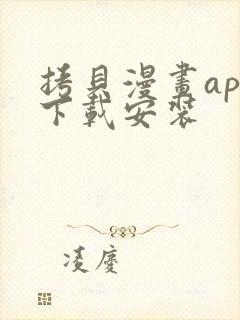 拷貝漫畫ap
下載安裝
凌慶